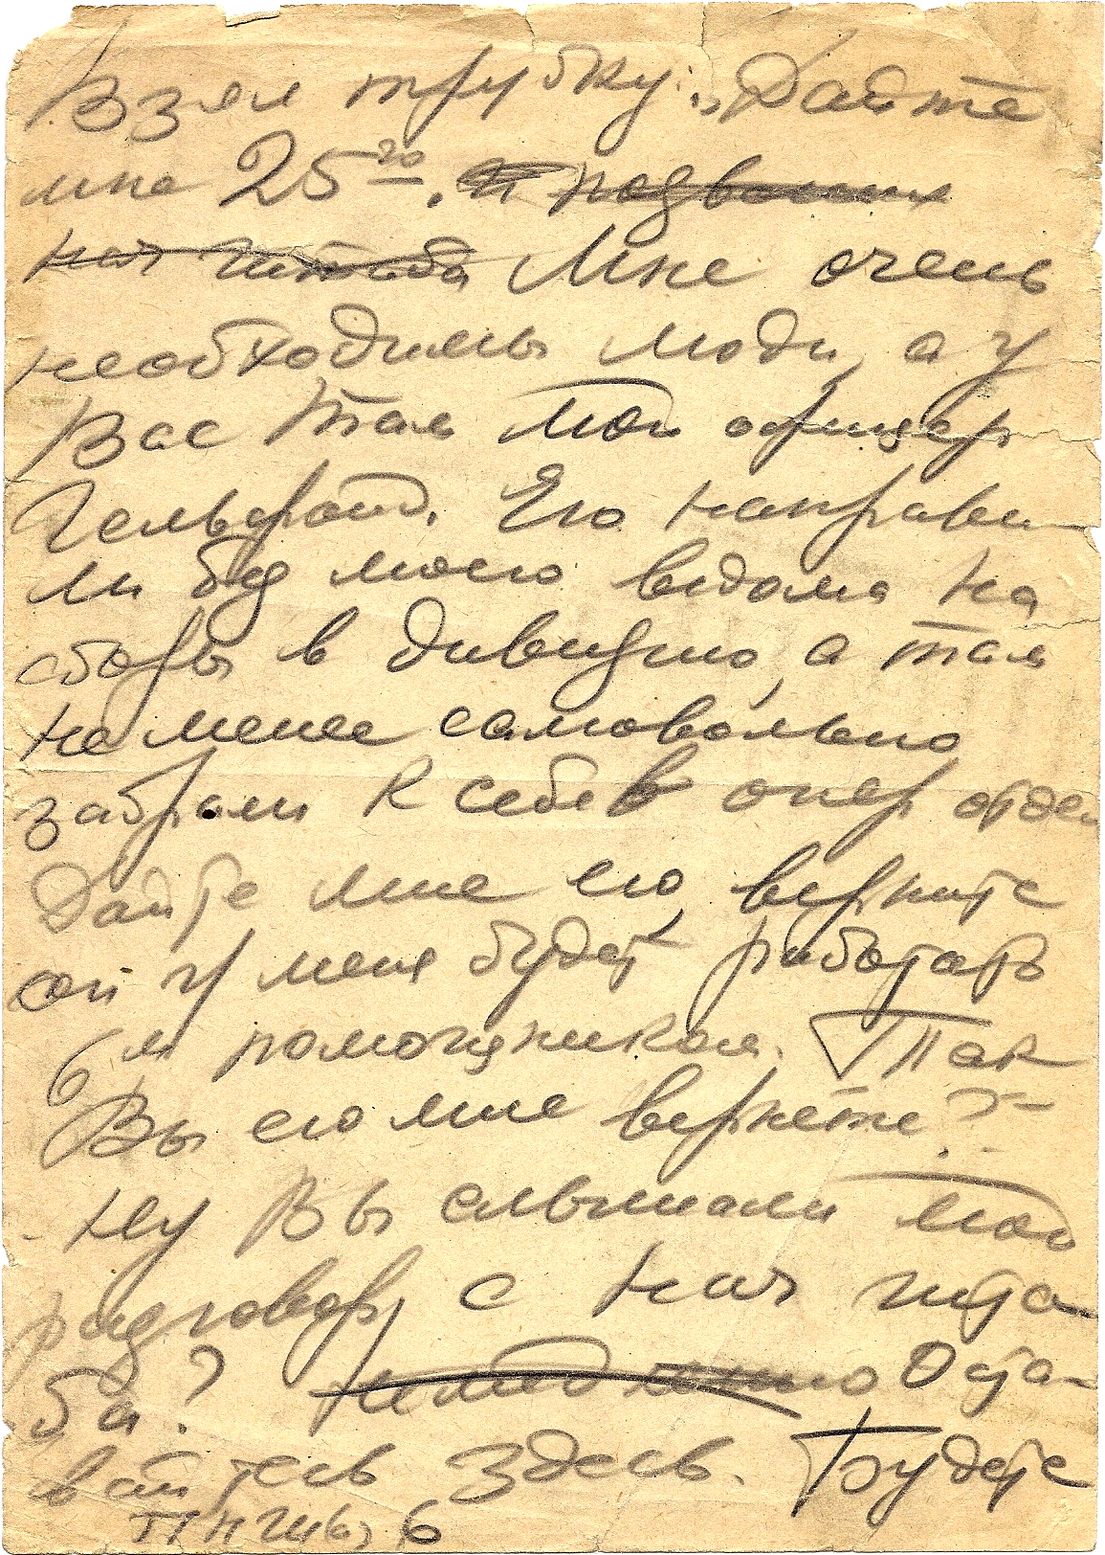 Взял трубку: „Дайте
мне 25го. и подвошик
нач штаба Мне очень
необходимы люди, а у
Вас там мой офицер
Гельфотд. Его направи-
ли без моего ведома на
сборы в дивизию, а там
не менее самовольно
забрали к себе в опер отдел
Дайте мне его, верните
он у меня будет работать
6м помощником. Так
Вы его мне вернёте?-
- Ну Вы слышали мой
разговор с нач шта-
ба? немедленно Оста-
вайтесь здесь. Будете
ПНШ 6